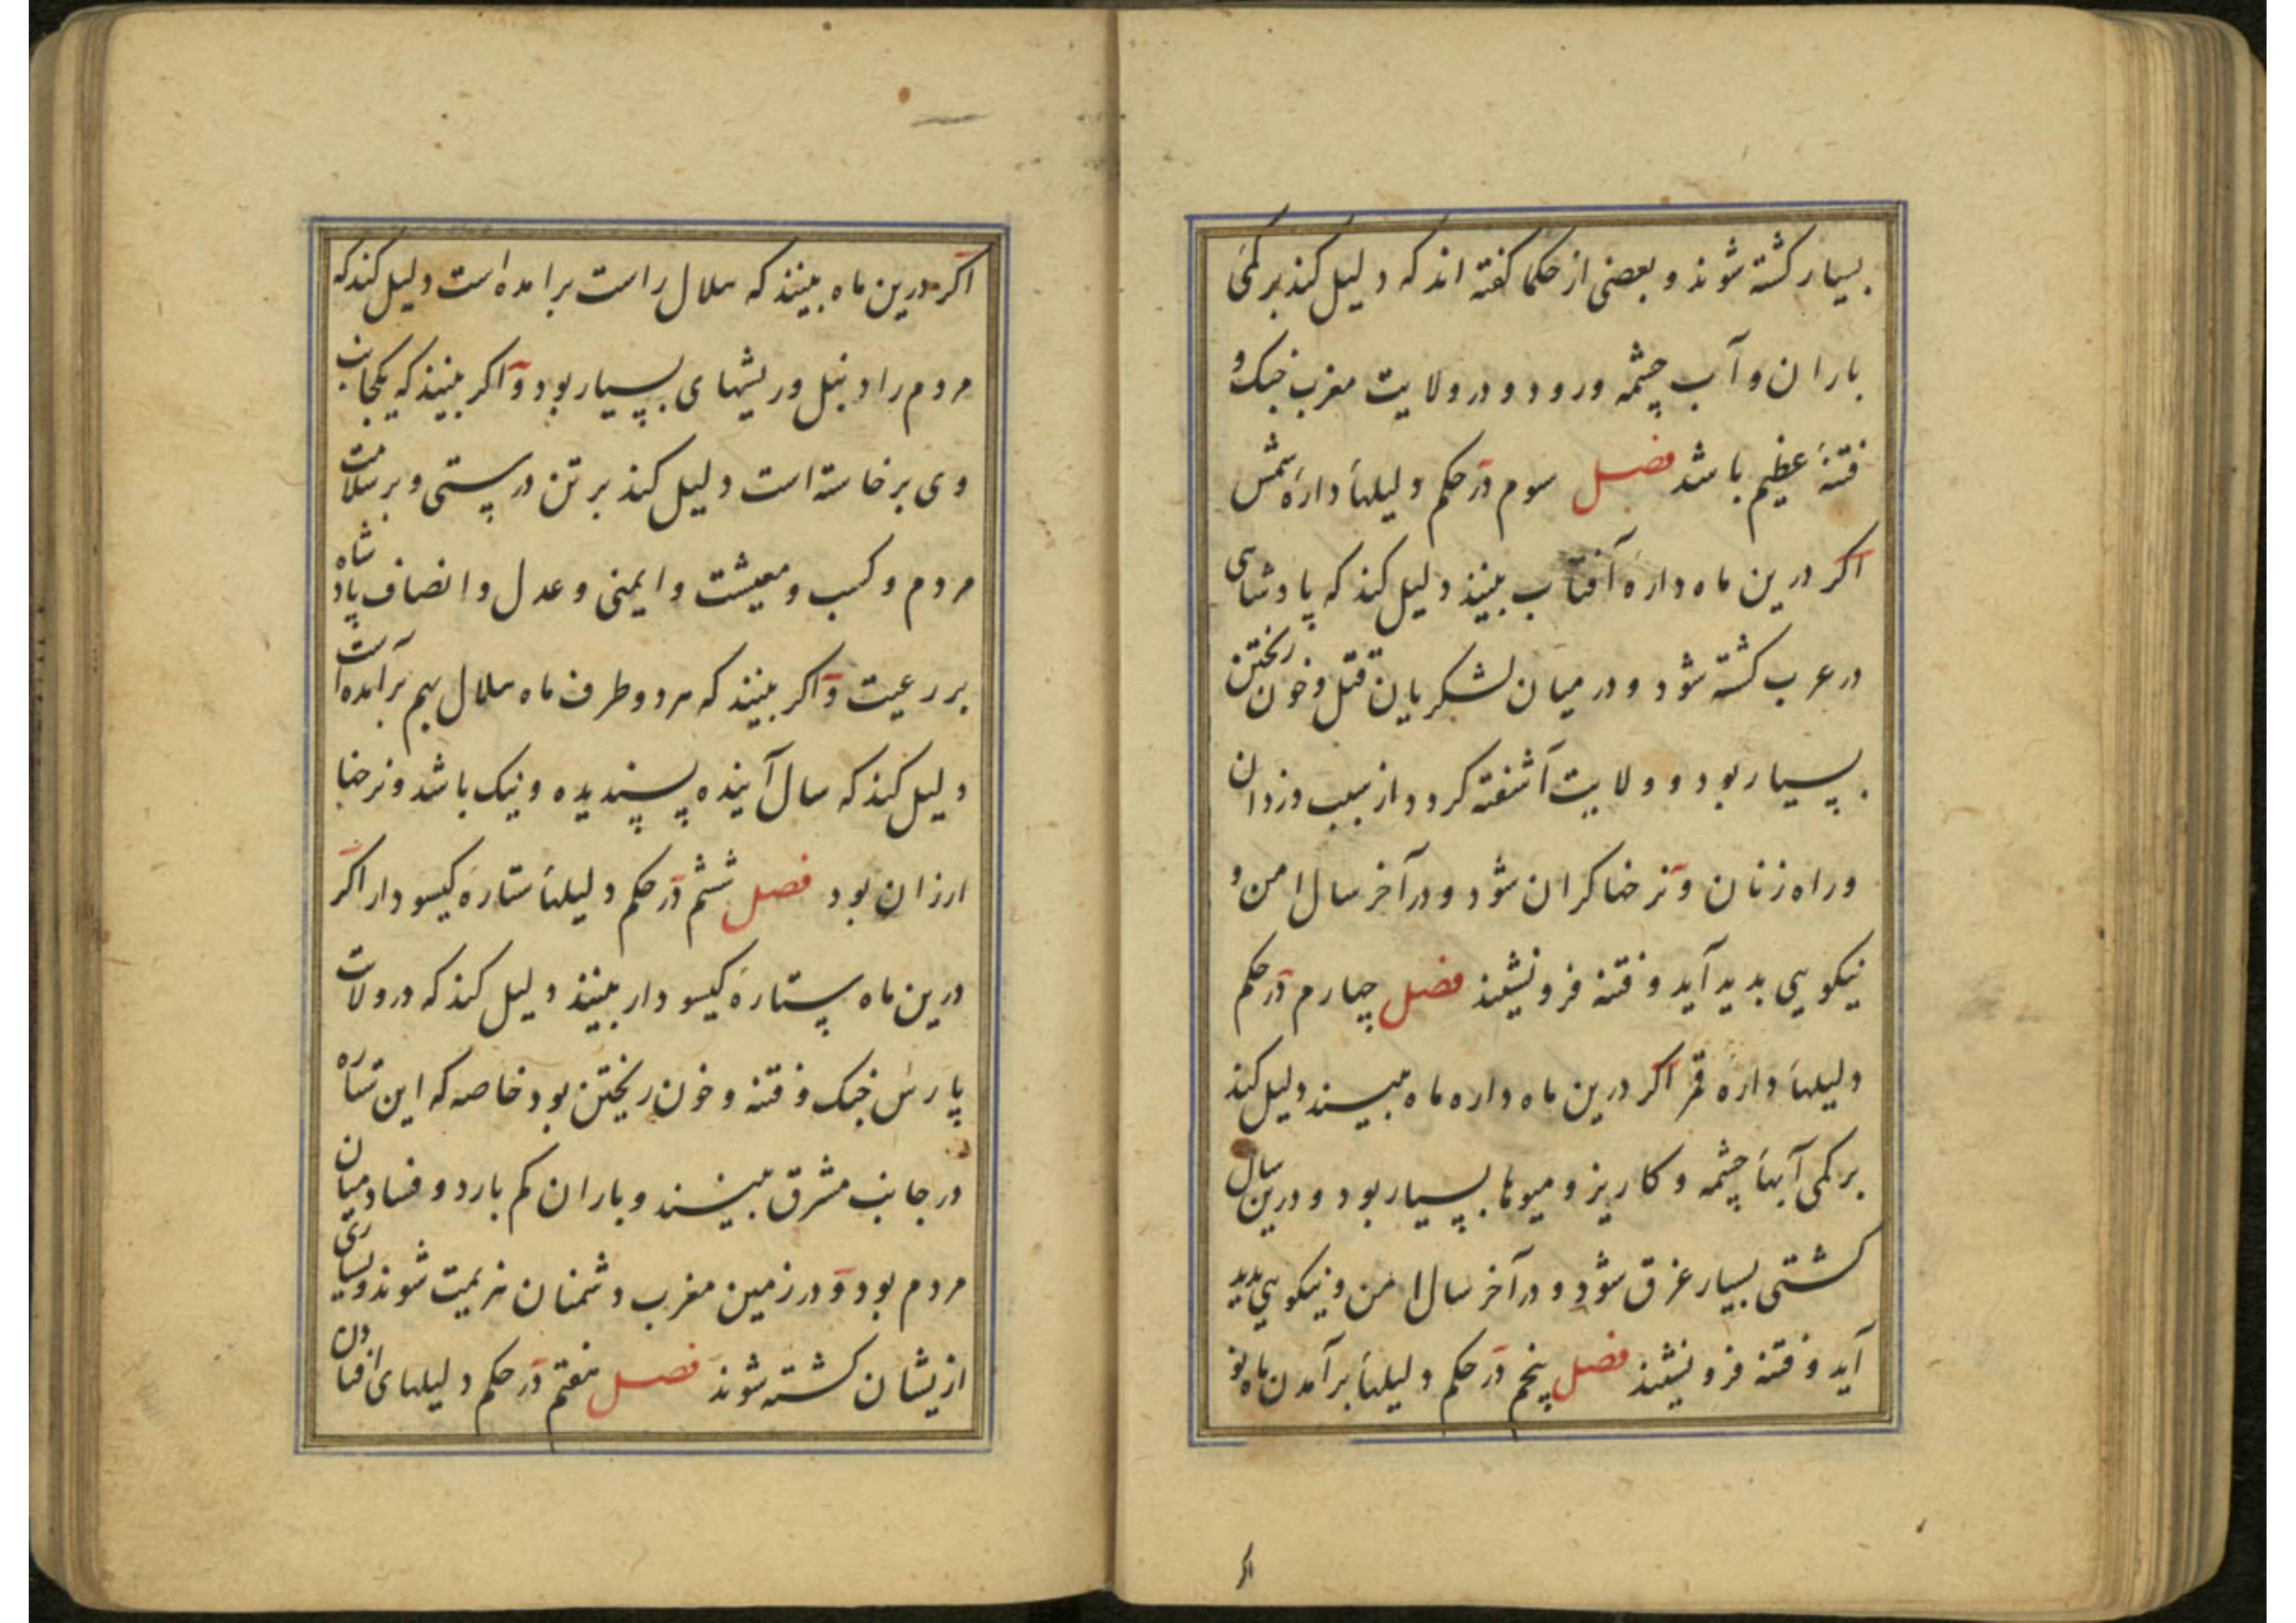 بسیار کشته شوند و بعضی از حکما کفته اند که دلیل کند بر کمی
باران و آب چشمه و رود و در ولایت مغرب جنک و
فتنهٔ عظیم باشد فصل سوم در حکم دلیلهاء دارهٔ شمس
اکر درین ماه دارهٔ آفتاب بینند دلیل کند که پادشاهی
در عرب کشته شود و در میان لشکریان قتل و خون ریختن
بسیار بود و ولایت آشفته کردد از سبب دزدان
و راه زنان و نرخها کران شود و در آخر سال امن و
نیکویی بدید آید و فتنه فرو نشیند فصل چهارم در حکم
دلیلهاء دارهٔ قمر اکر درین ماه داره ماه بینند دلیل کند
بر کمی آبهاء چشمه و کاریز و میوها بسیار بود و درین سال
کشتی بسیار غرق شود و در آخر سال امن و نیکویی بدید
آید و فتنه فرو نشیند فصل پنجم در حکم دلیلهاء برآمدن ماه نو
اکر
اکر درین ماه بینند که هلال راست برامده است دلیل کند که
مردم را دنبل و ریشهای بسیار بود و اکر بینند که یکجانب
وی برخاسته است دلیل کند بر تن درستی و بر سلامت
مردم و کسب و معیشت و ایمنی و عدل و انصاف پادشاه
بر رعیت و اکر بینند که هر دو طرف ماه هلال بهم برآمده است
دلیل کند که سال آینده پسندیده و نیک باشد و نرخها
ارزان بود فصل ششم در حکم دلیلهاء ستارهٔ کیسو دار اکر
درین ماه ستارهٔ کیسو دار بینند دلیل کند که در ولایت
پارس جنک و فتنه و خون ریختن بود خاصه که این ستاره
در جانب مشرق بینند و باران کم بارد و فساد میان
مردم بود و در زمین مغرب دشمنان هزیمت شوند و بسیاری
ازیشان کشته شوند فصل هفتم در حکم دلیلهای افتادن